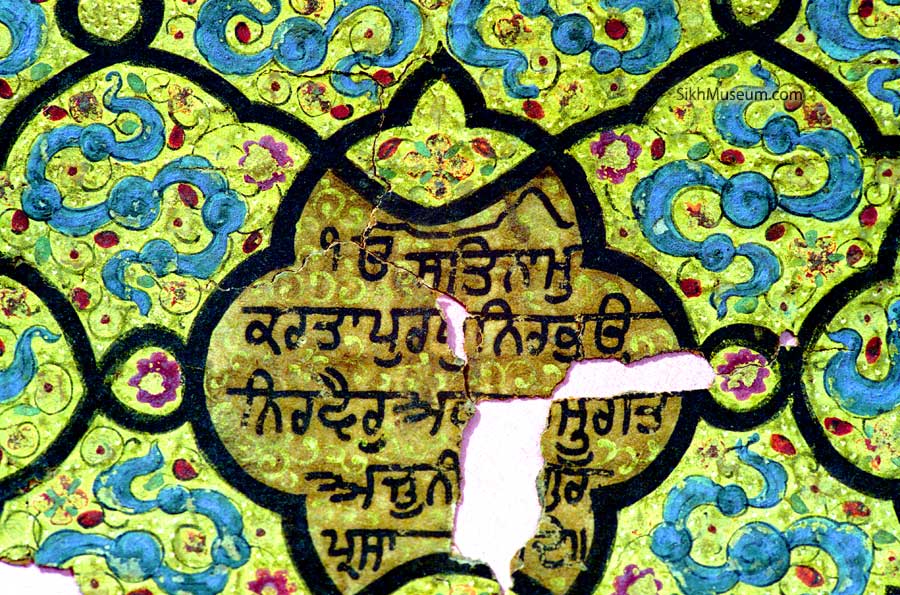 SikhMuseum.com
੧ਓ ਸਤਿਨਾਮੁ
ਕਰਤਾਪੁਰਖੁਨਿਰਭਉ
ਨਿਰਵੈਰੁ ਮੂਰਤਿ
ਅਜੂਨੀ ਗੁਰ
ਪ੍ਰਸਾ